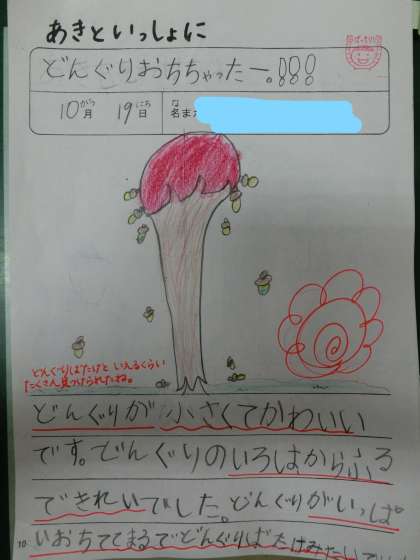 あきといっしょに
どんぐりおちちゃったー。!!!
10月 19日 名まえ
がつ にち な
どんぐりばたけと いえるくらい
たくさん見つけられたね。
どんぐりが小さくてかわいい
です。どんぐりのいろはからふる
できれいでした。どんぐりがいっぱ
いおちててまるでどんぐりばたけみたいで
10